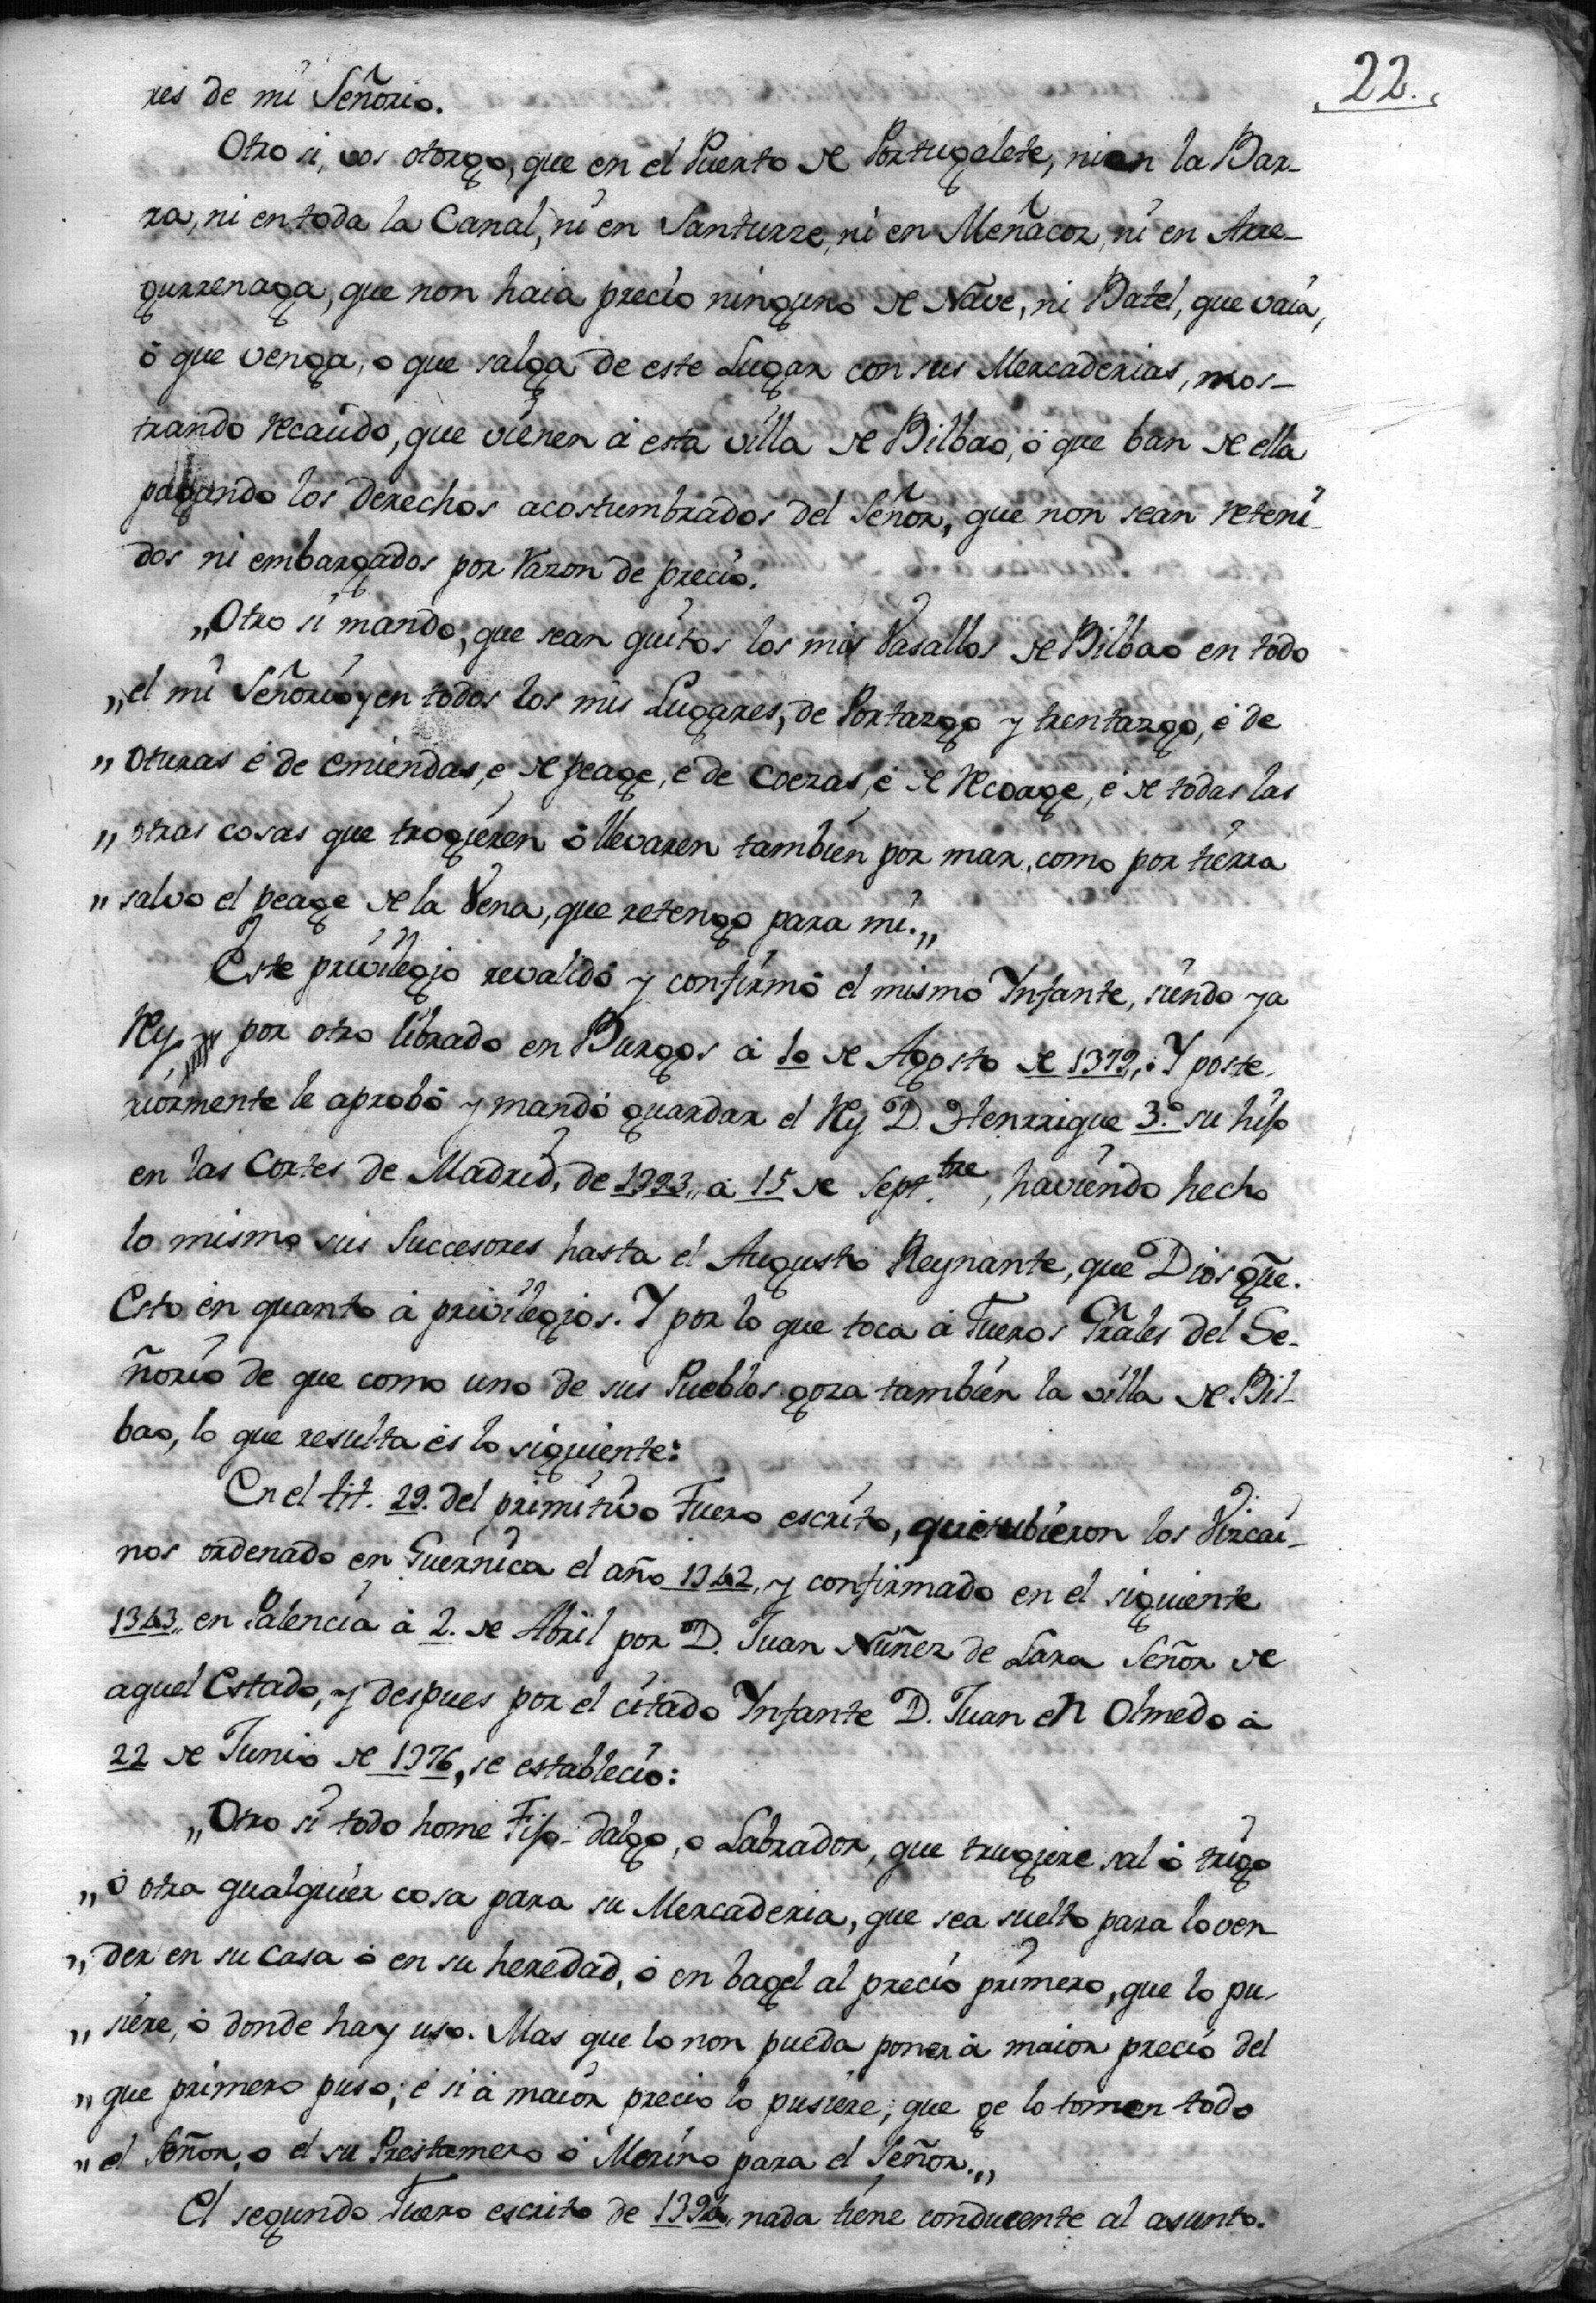 22.
res de mi Señorio.
Otro si, vos otorgo, que en el Puerto de Portugalete, ni en la Bar-
ra, ni en toda la Canal, ni en Santurze, ni en Meñacoz, ni en Arre-
gurrenaga, que non haia precio ninguno de Nave, ni Batel, que vaia,
ó que venga, o que salga de este Lugar con sus Mercaderias, mos-
trando recaudo, que vienen á esta villa de Bilbao, ó que ban de ella
pagando los derechos acostumbrados del Señor, que non sean reteni-
dos ni embargados por razon de precio.
„Otro si mando, que sean quitos los mis Vasallos de Bilbao en todo
„el mi Señorio y en todos los mis Lugares, de Portazgo y trentazgo, é de
„oturas é de emiendas, e de peage, e de coezas, é de recoage, é de todas las
„otras cosas que trogieren ó llevaren tambien por mar, como por tierra
„salvo el peage de la Vena, que retengo para mi.„
Este privilegio revalidó y confirmó el mismo Ynfante, siendo ya
Rey, por otro librado en Burgos á 10 de Agosto de 1379,: Y poste-
riormente le aprobó y mandó guardar el Rey D. Henrrique 3.º su hijo
en las Cortes de Madrid, de 1393,, á 15 de Sept.tre, haviendo hecho
lo mismo sus Succesores hasta el Augusto Reynante, que Dios gũe.
Esto en quanto á privilegios. Y por lo que toca á Fueros Grãles del Se-
ñorio de que como uno de sus Pueblos goza tambien la villa de Bil-
bao, lo que resulta es lo siguiente:
En el tit. 29. del primitivo Fuero escrito, que tubieron los Vizcai-
nos ordenado en Guernica el año 1342, y confirmado en el siguiente
1343,, en Palencia á 2. de Abril por D. Juan Nuñez de Lara Señor de
aquel Estado, y despues por el citado Ynfante D. Juan en Olmedo á
22 de Junio de 1376, se estableció:
„Otro si todo home Fijo-dalgo, o Labrador, que trugiere sal ó trigo
„ó otra qualquier cosa para su Mercaderia, que sea suelto para lo ven
„der en su casa ó en su heredad, ó en bagel al precio primero, que lo pu-
„siere, ó donde hay uso. Mas que lo non pueda poner á maior precio del
„que primero puso; é si á maior precio lo pusiere, que ge lo tomen todo
„el Señor, o el su Prestamero ó Merino para el Señor.„
El segundo Fuero escrito de 1394,, nada tiene conducente al asunto.